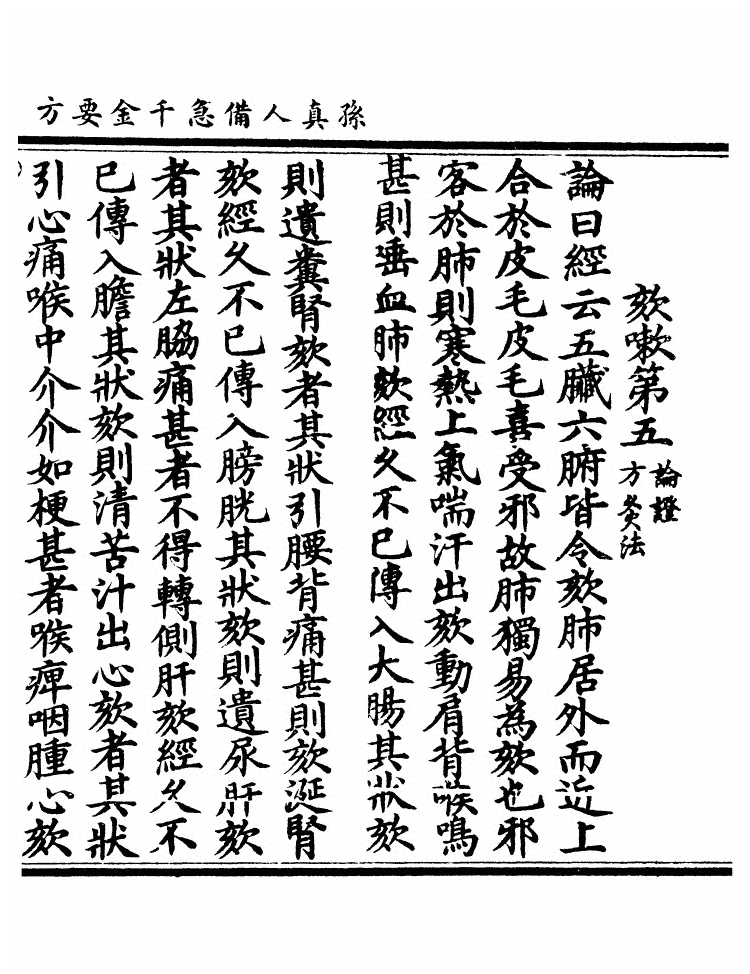 孫真人備急千金要方
欬嗽第五 論證方灸法
論曰經云五臟六腑皆令欬肺居外而近上
合於皮毛皮毛喜受邪故肺獨易為欬也邪
客於肺則寒熱上氣喘汗出欬動肩背喉鳴
甚則唾血肺欬經久不已傳入大腸其狀欬
則遺糞腎欬者其狀引腰背痛甚則欬涎腎
欬經久不已傳入膀胱其狀欬則遺尿肝欬
者其狀左脇痛甚者不得轉側肝欬經久不
已傳入膽其狀欬則清苦汁出心欬者其狀
引心痛喉中介介如梗甚者喉痺咽腫心欬